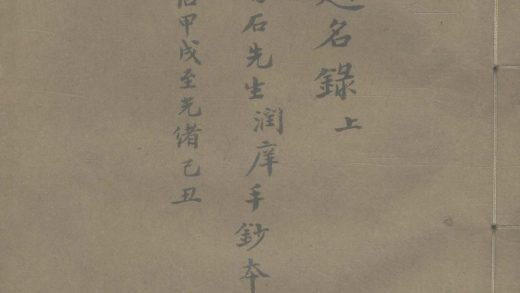 名錄上
石先生潤庠手鈔本
治甲戌至光緒己丑